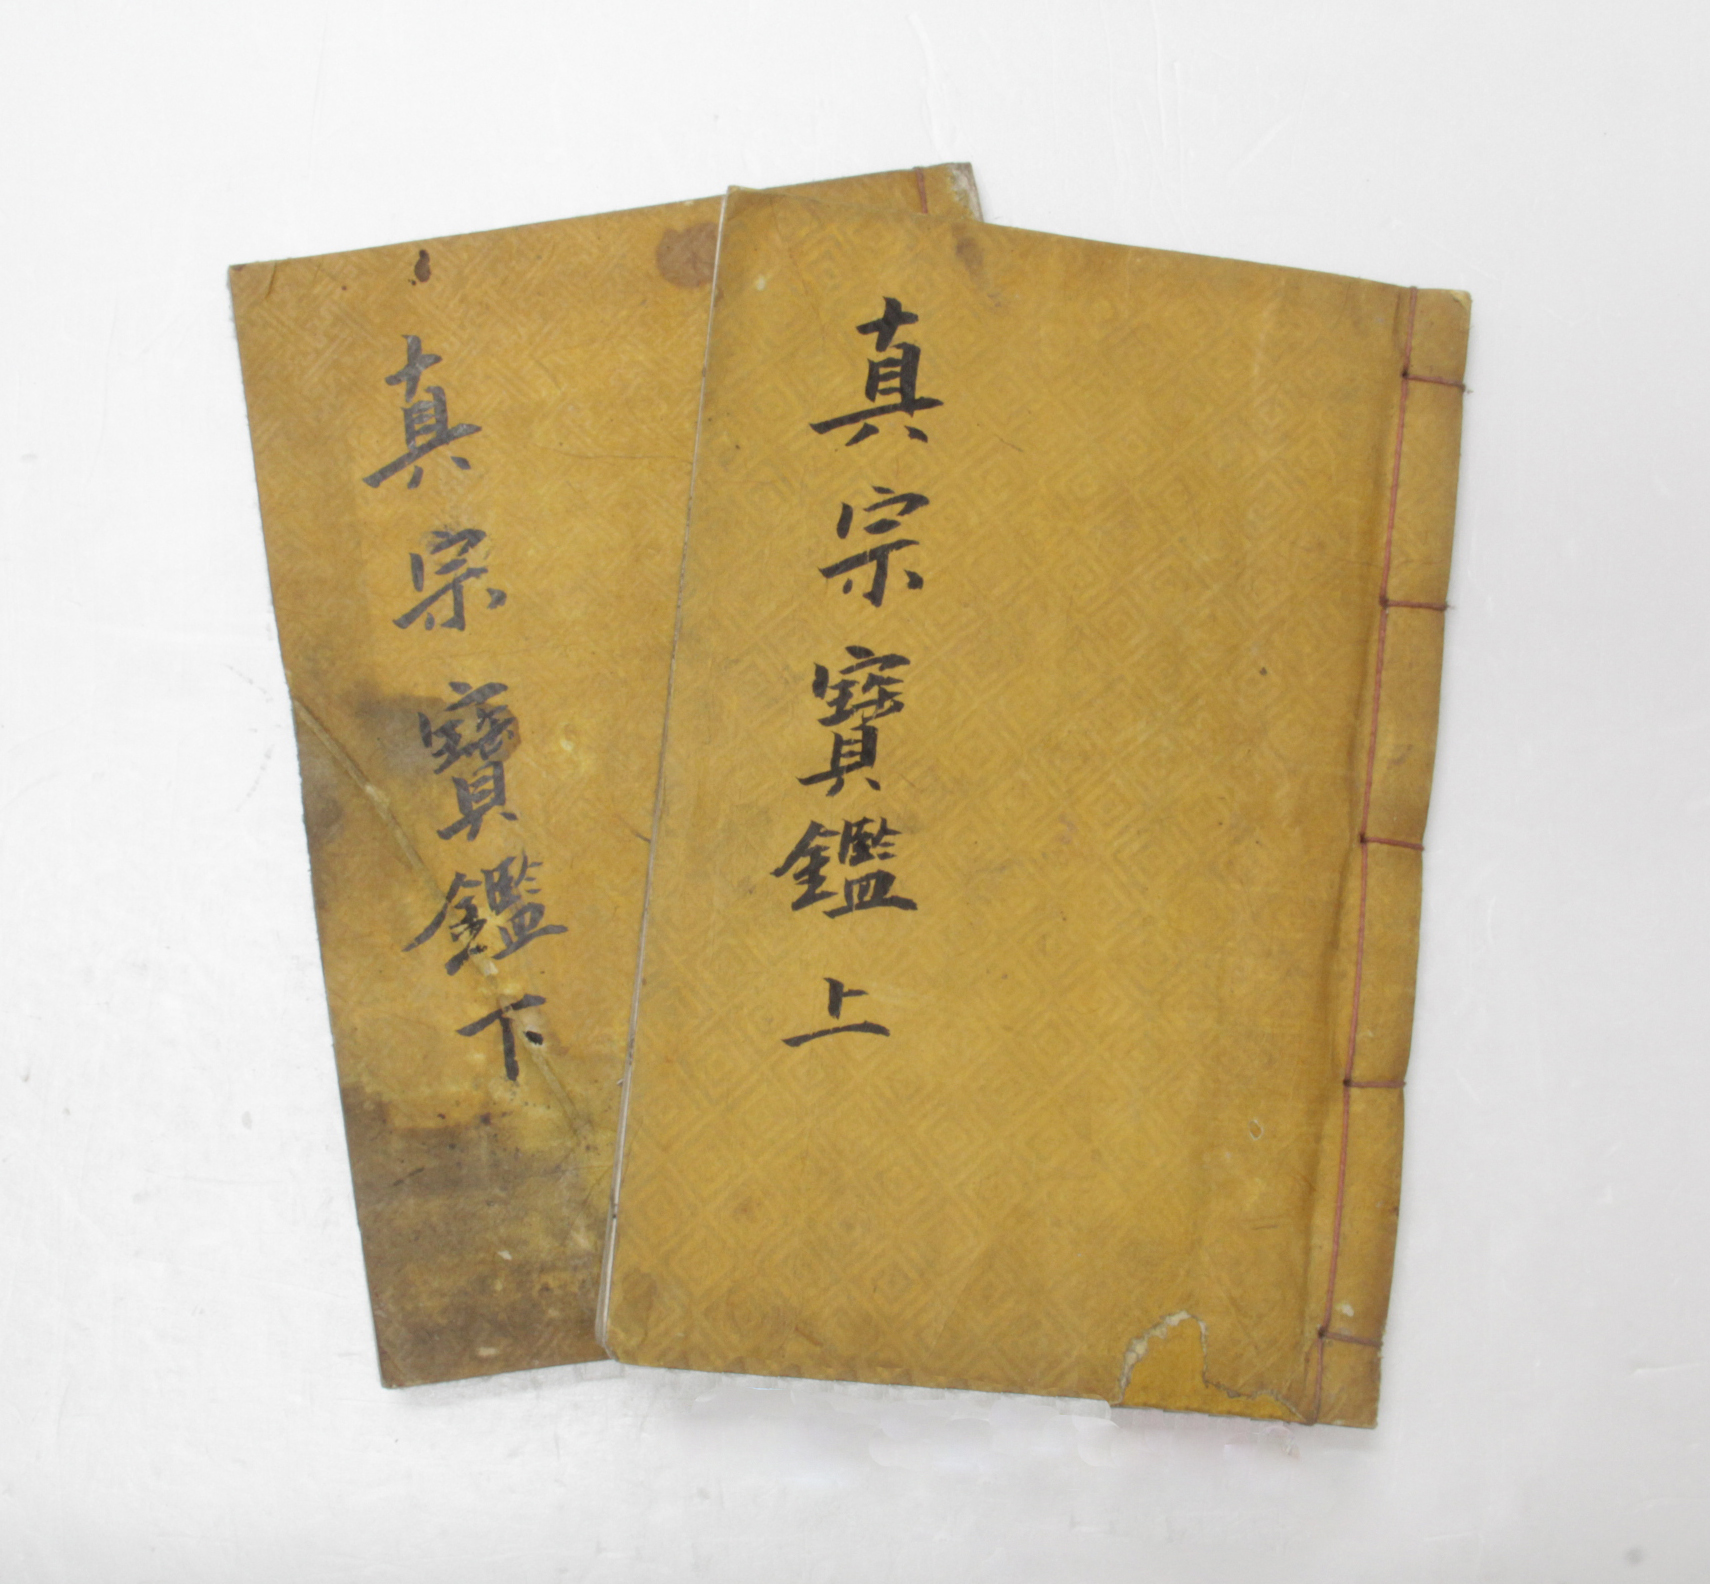 真宗寶鑑上
真宗寶鑑下